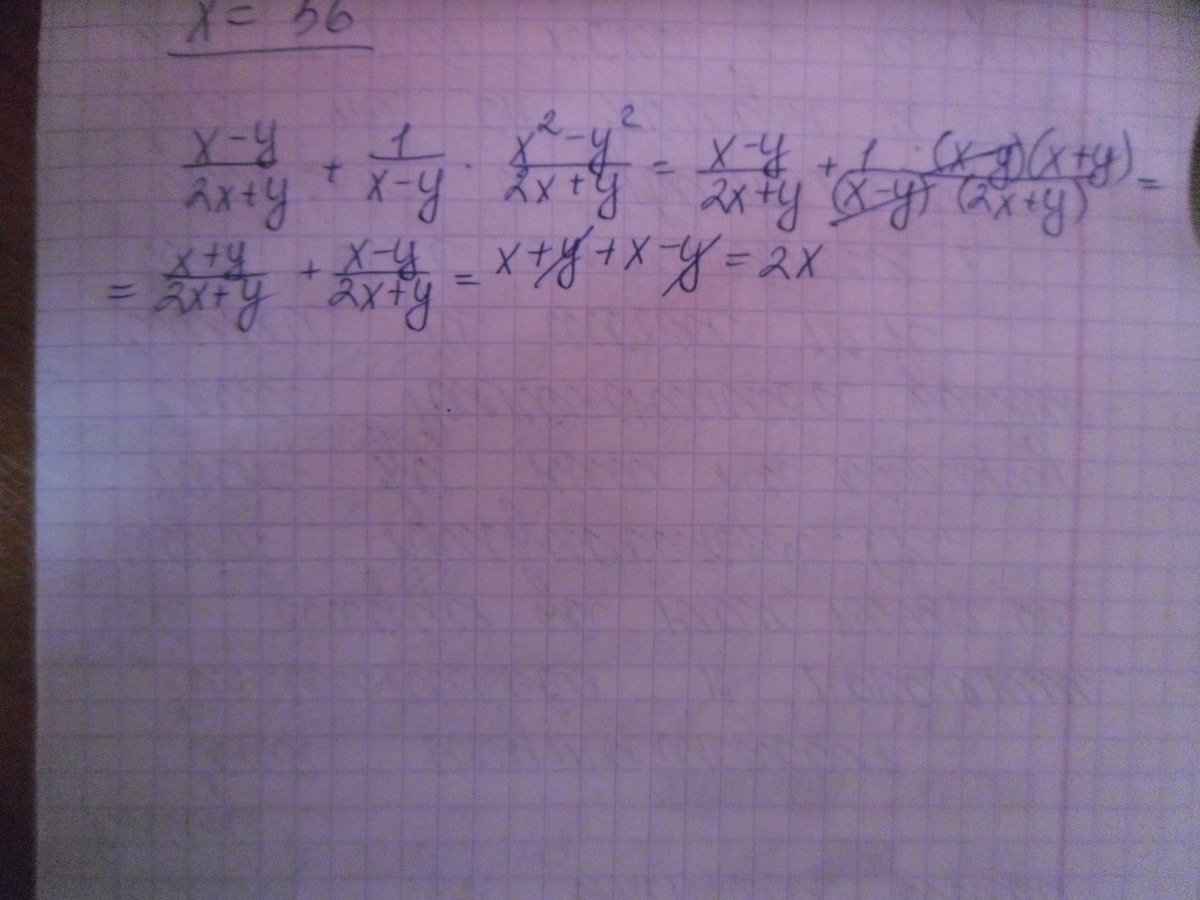 x = 56
x-y/2x+y + 1/x-y · x²-y²/2x+y = x-y/2x+y + 1·(x-y)(x+y)/(x-y)(2x+y) =
= x+y/2x+y + x-y/2x+y = x+y+x-y = 2x